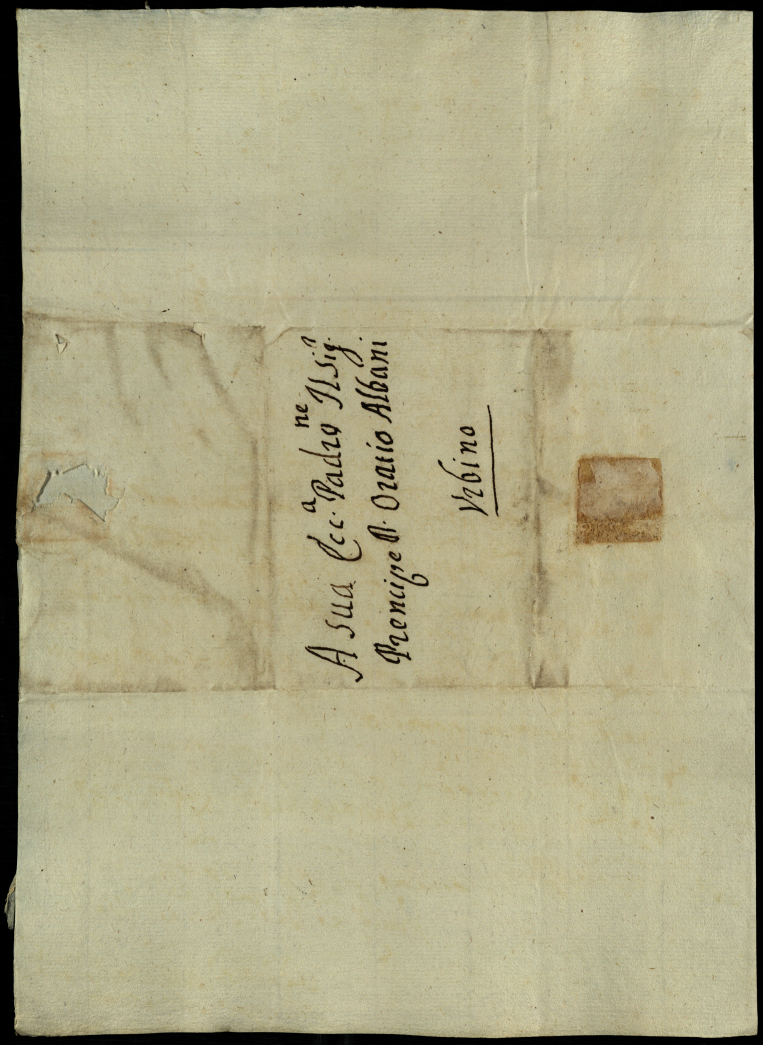 A sua Ecc.ᵃ Padroⁿᵉ Il Sigʳ.
Prencipe D. Oratio Albani
Urbino